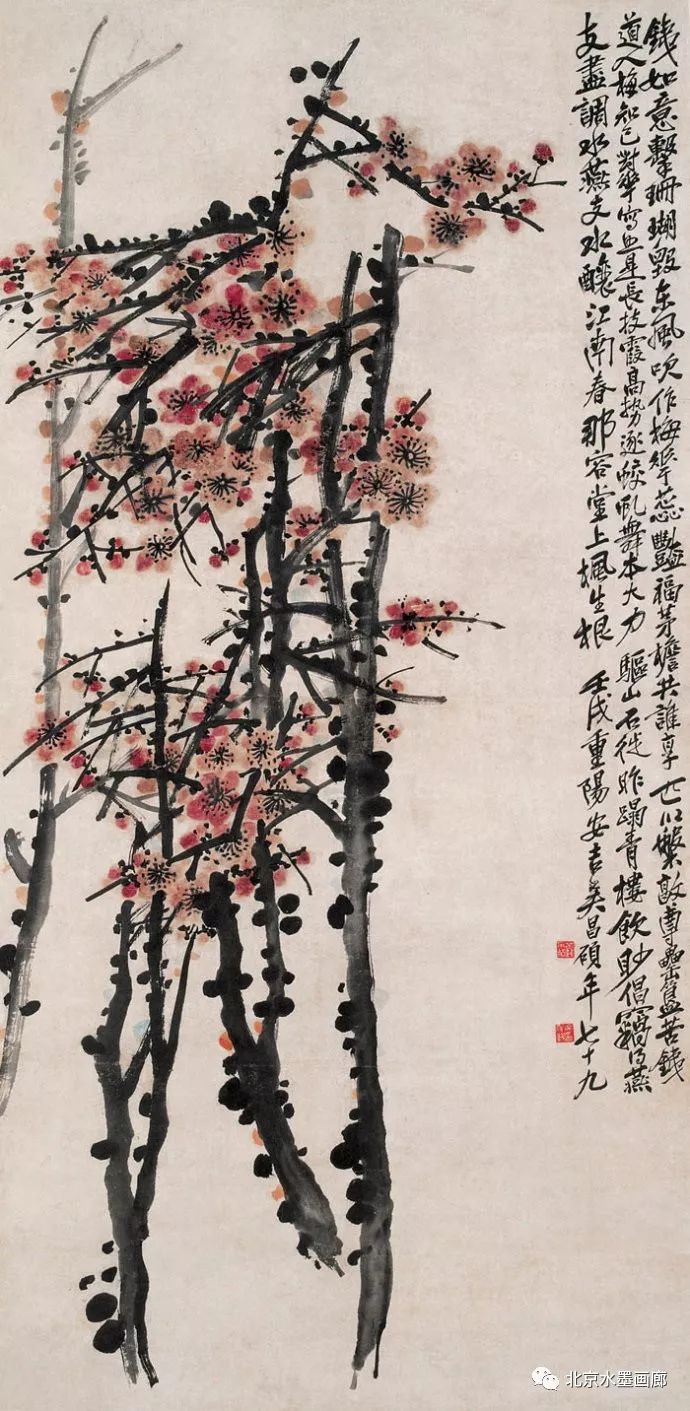 鐵如意擊珊瑚毀東風吹作梅華蕊豔福茅檐共誰享匹以盤敦尊罍簋苦鐵
道人梅知己對華寫照是長技霞高勢逐蛟虬舞本大力驅山石徙昨蹋青樓飲眇倡竊得燕
支盡調水燕支水釀江南春那容堂上楓生根 壬戌重陽安吉吳昌碩年七十九
北京水墨画廊